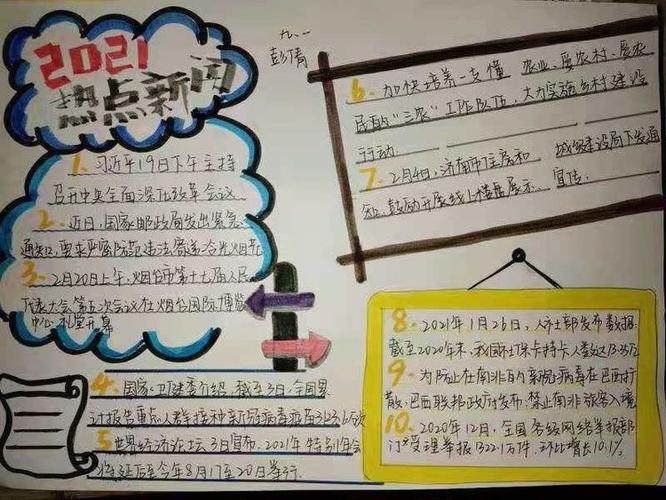 2021
热点新闻
九.一
彭倩
1. 习近平19日下午主持
召开中央全面深化改革会议
2. 近日,国家邮政局发出紧急
通知,要求严密防范违法寄递
3. 2月20日上午,烟台市第十七届人民
代表大会第五次会议在烟台国际博览
中心礼堂开幕
4. 国家卫健委介绍,截至3日,全国累
计报告重点人群接种新冠病毒疫苗312.36万次
5 世界经济论坛3日宣布,2021年特别年会
将延后至今年8月17至20日举行.
6. 加快培养一支懂农业、爱农村、爱农
民的“三农”工作队伍,大力实施乡村建设
行动.
7. 2月4日,济南市住房和城乡建设局下发通
知,鼓励开展线上楼盘展示、宣传.
8. 2021年1月26日,人社部发布数据,
截至2020年末,我国社保卡持卡人数达13.35亿
9. 为防止在南非的新冠病毒在巴西扩
散,巴西联邦政府发布,禁止南非旅客入境
10. 2020年12月,全国各级网络举报部
门受理举报1322.1万件、环比增长10.1%